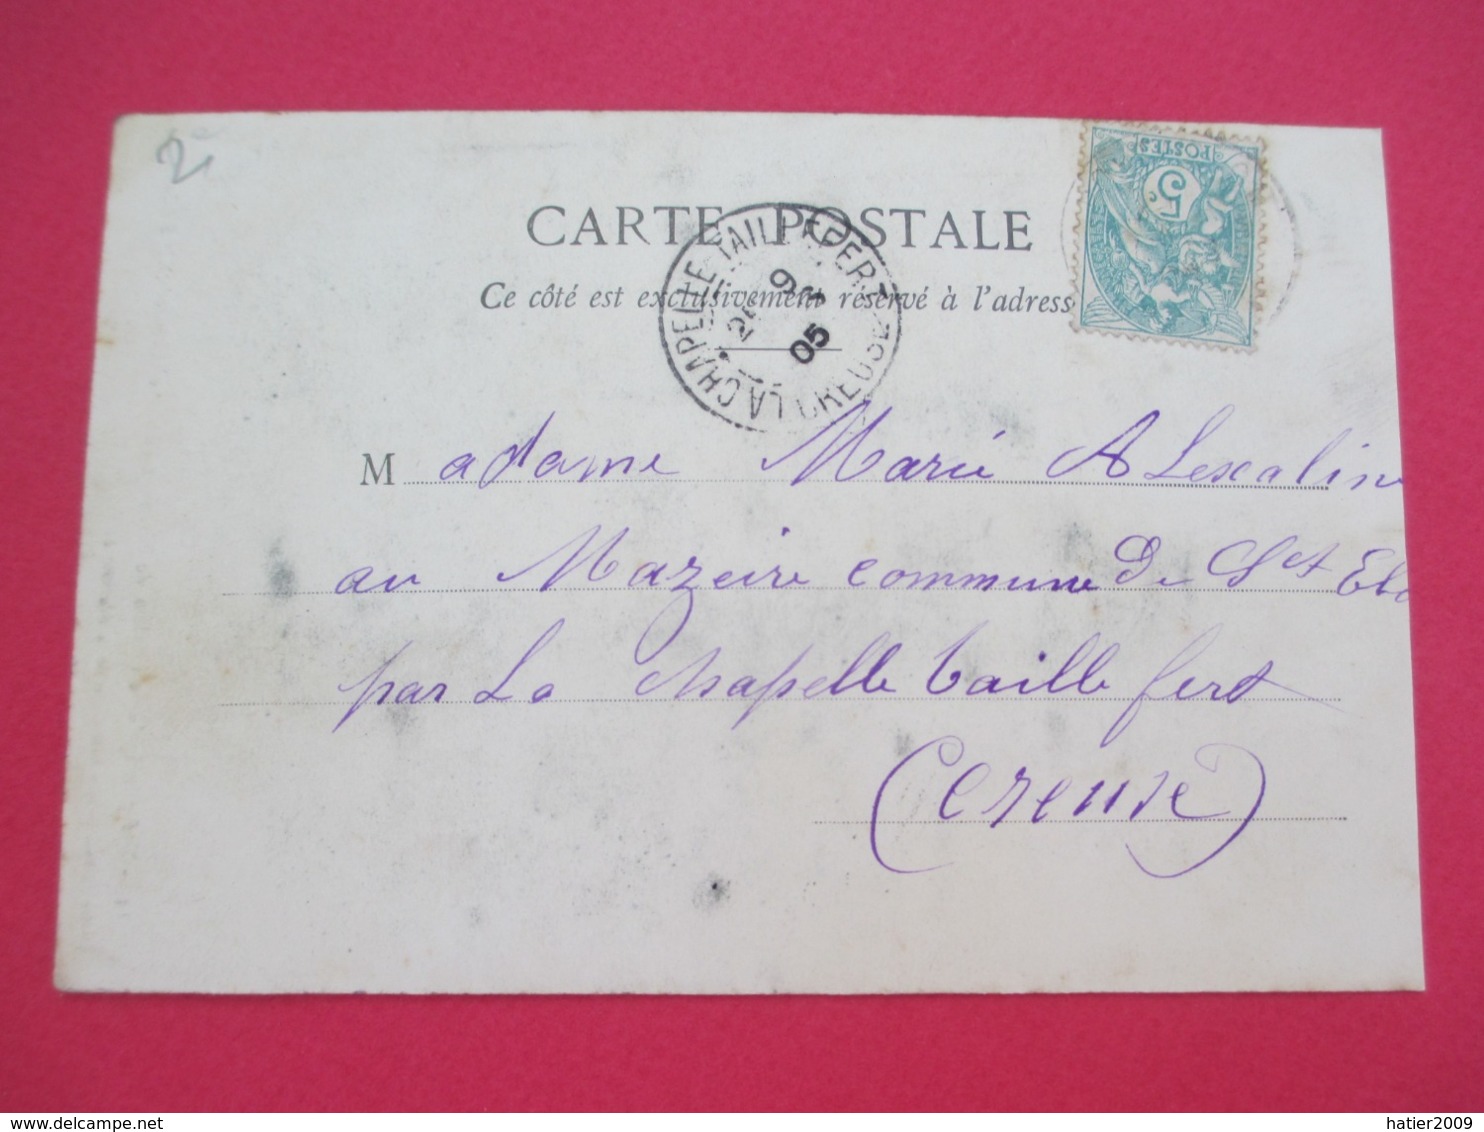 2
CARTE POSTALE
Ce côté est exclusivement réservé à l'adress
POSTES
5c
LA CHAPELLE TAILLEFERT
CREUSE
9
05
Madame Marie A Lescalin
au Mazeire commune De St Elo
par La Chapelle taille fert
(Creuse)
hatier2009